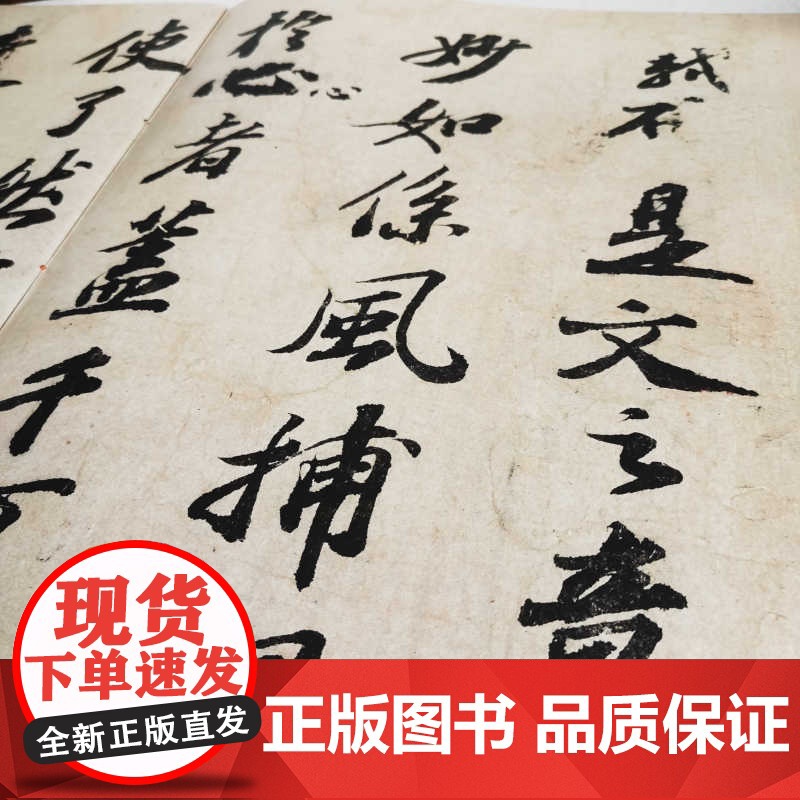 軾不
是文之
妙如係風捕
於心心者蓋千
使了然
现货
下单速发
全新正版直发
正版图书 品质保证